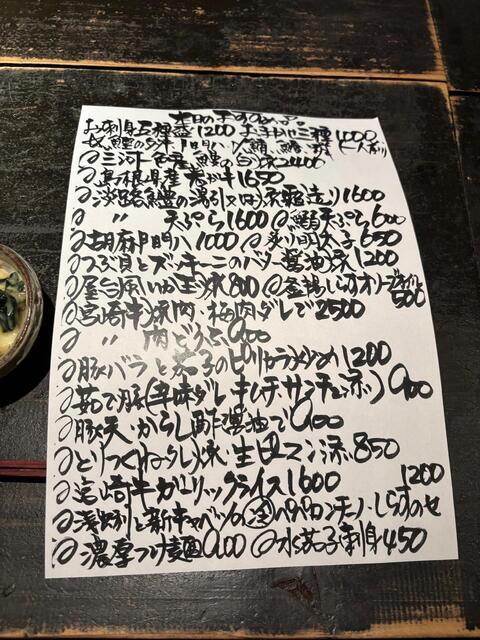 本日のおすすめ
お刺身五種盛1200 お手軽三種1000
三河一色産、鰻の白焼2400
島根県産 岩がき1650
淡路鱧の湯引又は炙り1600
〃 天ぷら1600 鰯天ぷら600
胡麻〆鯖1000 炙り明太子650
つぶ貝とズッキーニのバター醤油焼1200
屋台風いか玉焼800 釜揚しらすオリーブオイル500
宮崎牛焼肉・梅肉ダレで2500
〃 肉どうふ900
豚バラと茄子のピリカラ 1200
茹で豚(辛味ダレ・キムチ・サンチュ添)900
豚天・からし酢醤油で900
とりつくね焼・生ピーマン添850
宮崎牛ガーリックライス1600 1200
浅利と新キャベツの冷ペペロンチーノ・しらすのせ
濃厚つけ麺900 水茄子刺身450